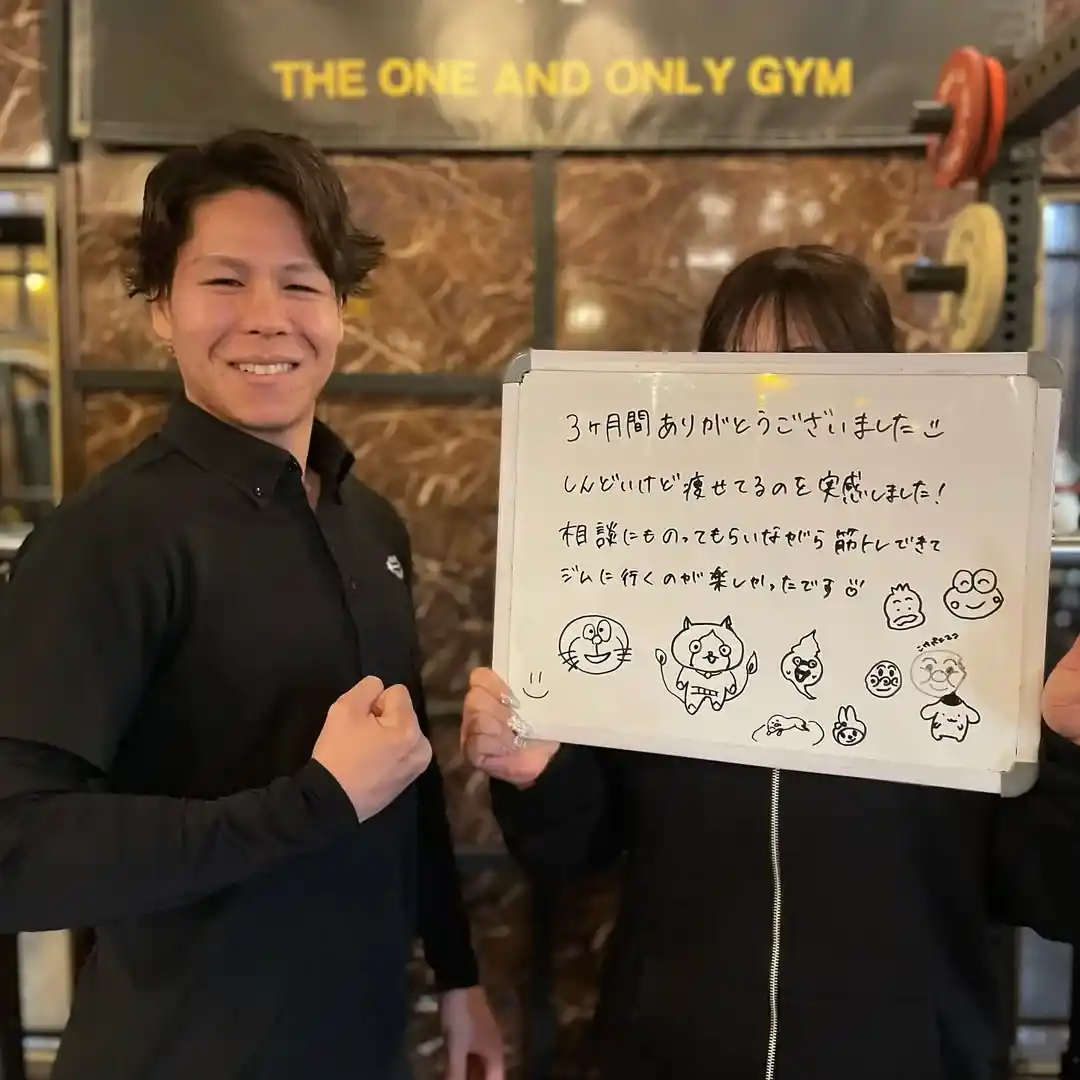 THE ONE AND ONLY GYM
3ヶ月間ありがとうございました
しんどいけど痩せてるのを実感しました!
相談にものってもらいながら筋トレできて
ジムに行くのが楽しかったです